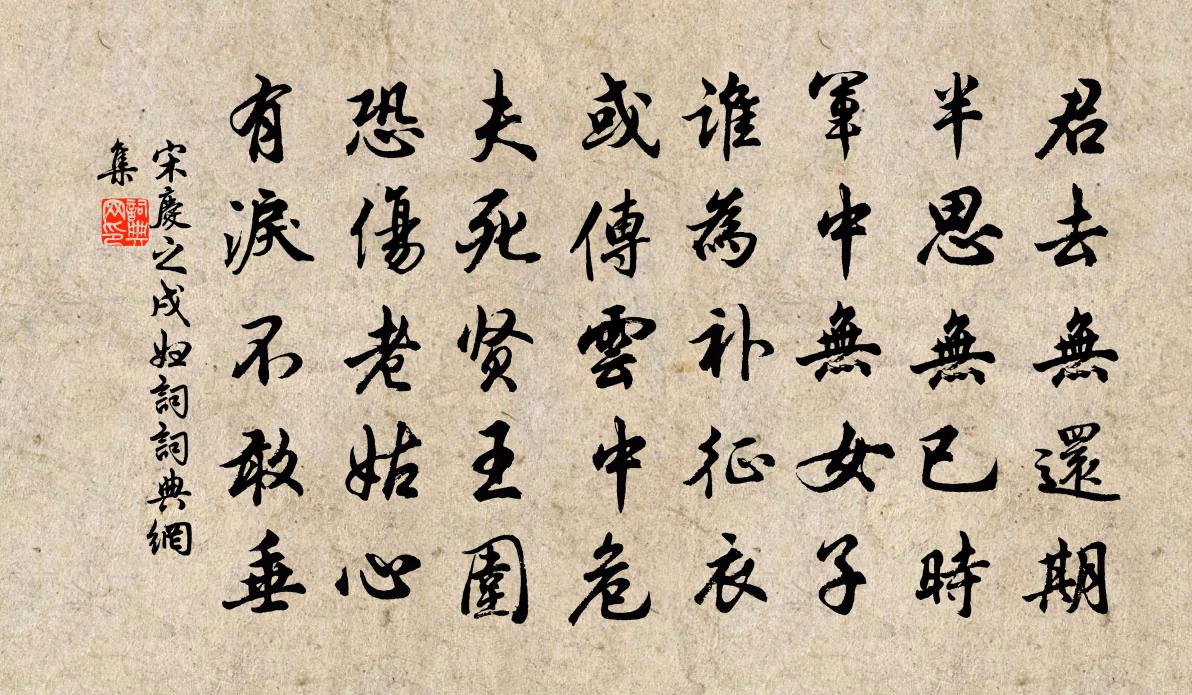 君去無還期
半思無已時
軍中無女子
誰為补征衣
或傳雲中危
夫死贤王圍
恐傷老姑心
有淚不敢垂
宋慶之戍妇詞詞典網
集
詞典
网印